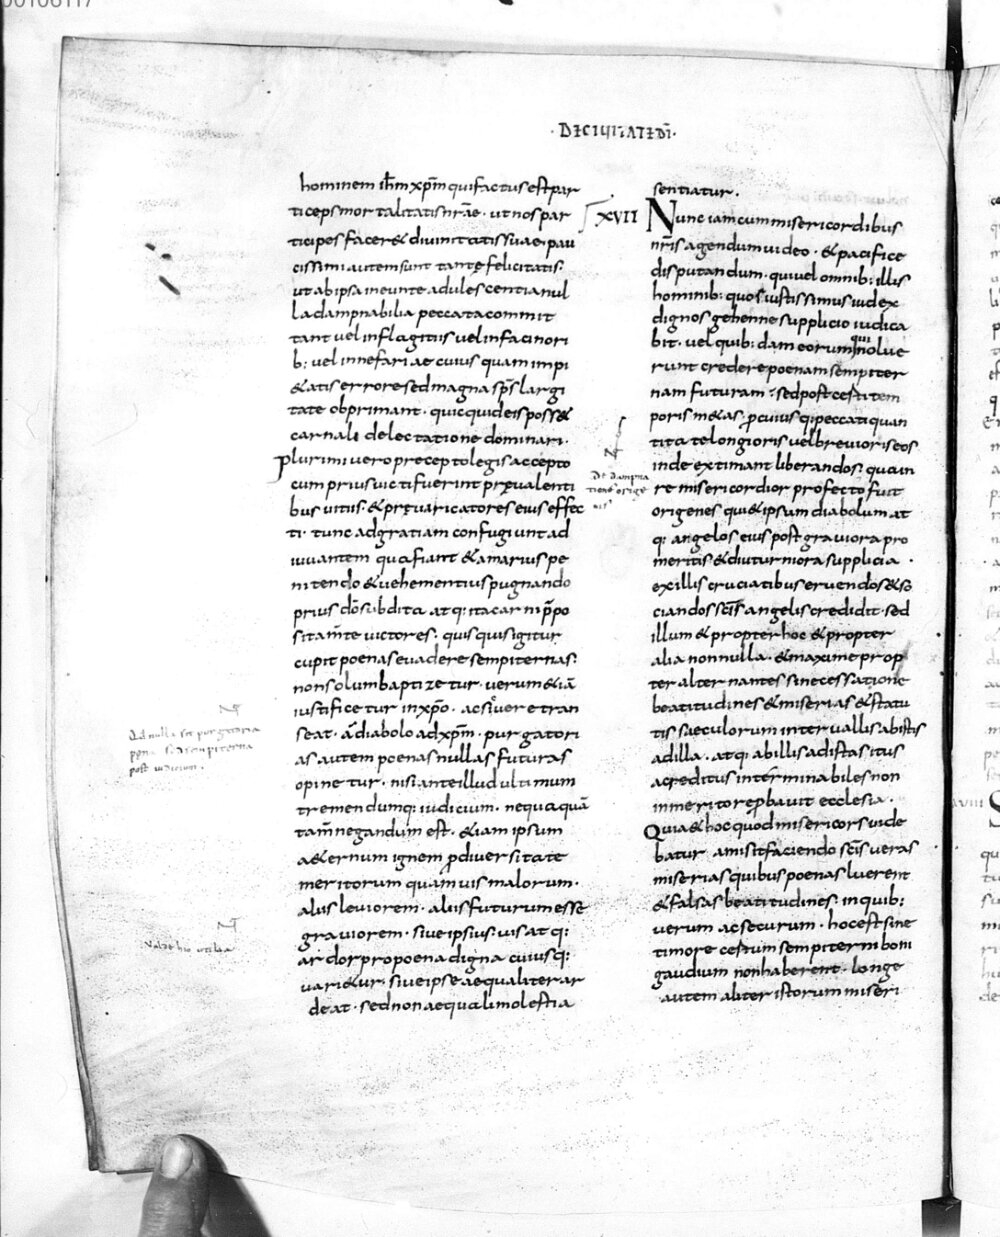 00106117
· DE CIUITATE DI ·
hominem ihm xpm qui factus est par
ticeps mortalitatis nrae · ut nos par
ticipes facer& diuinitatis suae · pau
cissimi autem sunt tante felicitatis ·
ut ab ipsa ineunte adulescentia nul
la dampnabilia peccata commit
tant uel in flagitiis uel in facinori
b: uel in nefariae cuiusquam impi
&atis errore sed magna sps largi
tate obprimant · quicquid eis poss&
carnali delectatione dominari ·
Plurimi uero precepto legis accepto
cum prius uicti fuerint preualenti
bus uitiis · & preuaricatores eius effec
ti · tunc ad gratiam confugiunt ad
iuuantem qua fiant & amarius pe
nitendo & uehementius pugnando
prius do subdita · atq: ita carni ppo
sita mte uictores · quisquis igitur
cupit poenas euadere sempiternas ·
non solum baptizetur · uerum &iā
iustificetur in xpo · ac si uere tran
seat · a diabolo ad xpm · purgatori
as autem poenas nullas futuras
opinetur · nisi ante illud ultimum
tremendumq: iudicium · nequaquā
tam negandum est · &iam ipsum
a&ernum ignem p diuersitate
meritorum quamuis malorum ·
aliis leuiorem · aliis futurum esse
grauiorem · siue ipsius uis atq:
ardor pro poena digna cuiusq:
uari&ur · siue ipse aequaliter ar
deat · sed non aequali molestia
Ad nulla sit purgatoria
pena · sempiterna
post iudicium ·
Valde hic utilia
sentiatur ·
XVII Nunc iam cum misericordibus
nris agendum uideo · & pacifice
disputandum · qui uel omnib: illis
hominib: quos iustissimus iudex
dignos gehenne supplicio iudica
bit · uel quib: dam eorum qui nolue
runt credere poenam sempiter
nam futuram · sed post certi tem
poris m&as · p cuiusq: peccati quan
titate longioris uel breuioris eos
inde extimant liberandos · qua in
re misericordior profecto fuit
origenes qui & ipsum diabolum at
q: angelos eius post grauiora pro
meritis & diuturniora supplicia ·
ex illis cruciatibus eruendos & so
ciandos scis angelis credidit · sed
illum & propter hoc & propter
alia nonnulla · & maxime prop
ter alternantes sine cessatione
beatitudines & miserias & statu
tis saeculorum interuallis ab istis
ad illa · atq: ab illis ad istas itus
ac reditus interminabiles non
inmerito rep bauit ecclesia ·
Quia & hoc quod misericors uide
batur amisit faciendo scis ueras
miserias quibus poenas luerent
& falsas beatitudines · in quib:
uerum ac securum · hoc est sine
timore certum sempiterni boni
gaudium non haberent · Longe
autem aliter istorum miseri
De dampna
tione orige
nis